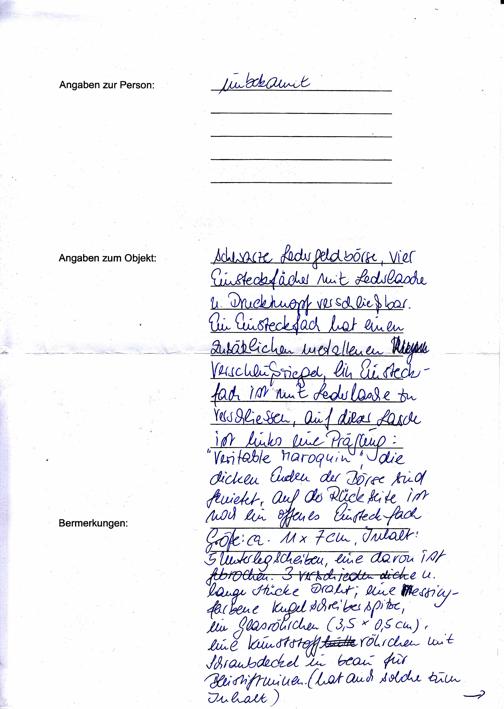 Angaben zur Person:
unbekannt
Angaben zum Objekt:
schwarze Ledergeldbörse, vier
Einsteckfächer mit Lederlasche
u. Druckknopf verschließbar.
Ein Einsteckfach hat einen
zusätzlichen metallenen
Verschlußriegel, ein Einsteck-
fach ist mit Lederlasche zu
verschliessen, auf dieser Lasche
ist links eine Prägung:
"Veritable Maroquin", die
Enden der Börse sind
genietet, auf der Rückseite ist
noch ein offenes Einsteckfach
Bermerkungen:
Größe: ca. 11 x 7 cm, Inhalt:
5 Unterlegscheiben, eine davon ist
gebrochen. 3 verschieden dicke u.
lange Stücke Draht; eine Messing-
farbene Kugelschreiberspitze,
ein Glasröhrchen (3,5 x 0,5 cm),
eine Kunststoffröhrchen mit
Schraubdeckel in beau für
Bleistiftminen. (hat auch solche zum
Inhalt)
→